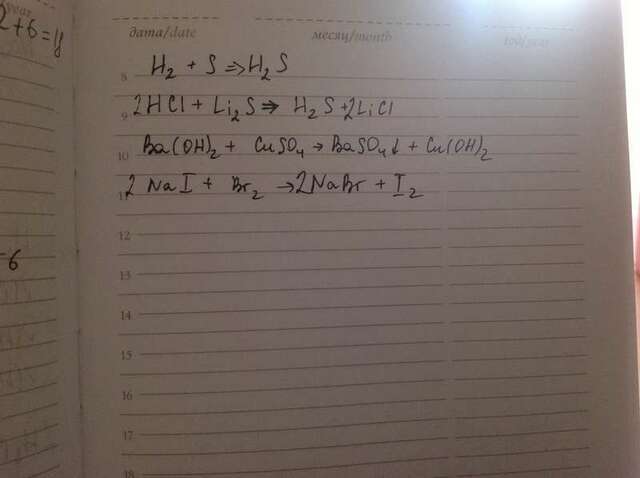 year
2+6=11
дата/date месяц/month год/year
8 H₂ + S ⇒ H₂S
9 2HCl + Li₂S ⇒ H₂S + 2LiCl
10 Ba(OH)₂ + CuSO₄ → BaSO₄↓ + Cu(OH)₂
11 2NaI + Br₂ → 2NaBr + I₂
12
-6
13
14
15
16
17
18